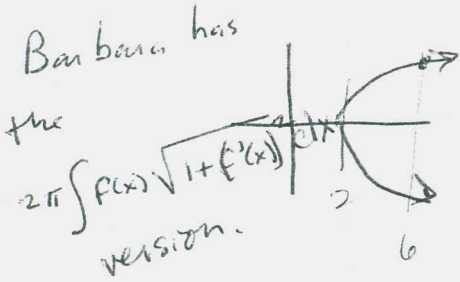 Barbara has
the
2π∫f(x)√1+(f'(x))² dx
version.
2
6